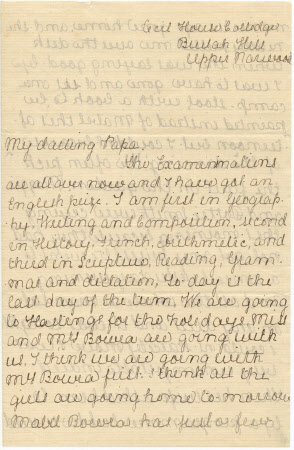 Cecil House College
Beulah Hill
Upper Norwood
My darling Papa
the Examennations
are all over now and I have got an
English prize. I am first in Geograp-
hy, Writing and Composition, second
in History, French, Arithmetic, and
third in Scripture, Reading, Gram-
mar and dictation, To day is the
last day of the term, We are going
to Hastings for the holidays. Miss
and Mrs Bowra are going with
us. I think we are going with
Mrs Bowra first. I think all the
girls are going home to-morrow
Mabel Bowra has just a few